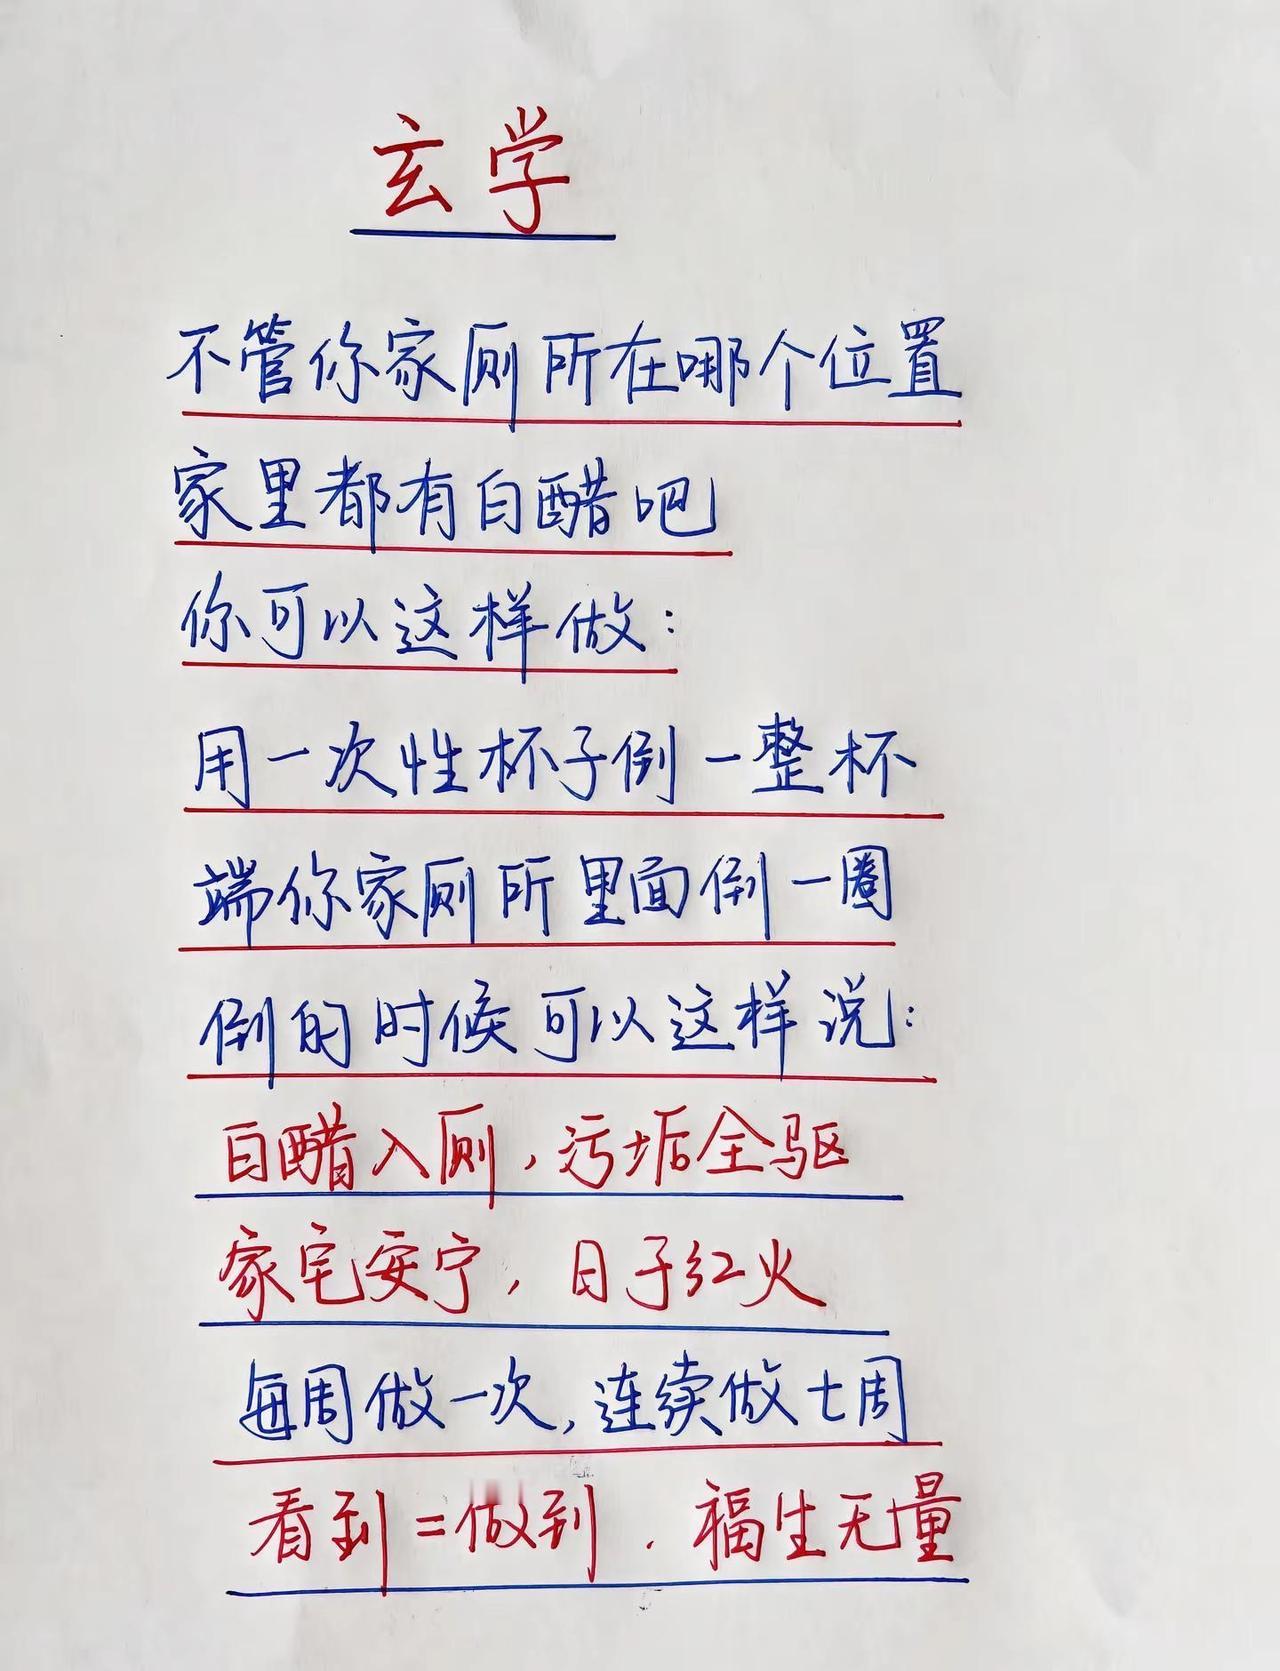 玄学
不管你家厕所在哪个位置
家里都有白醋吧
你可以这样做:
用一次性杯子倒一整杯
端你家厕所里面倒一圈
倒的时候可以这样说:
白醋入厕,污垢全驱
家宅安宁,日子红火
每周做一次,连续做七周
看到=做到.福生无量